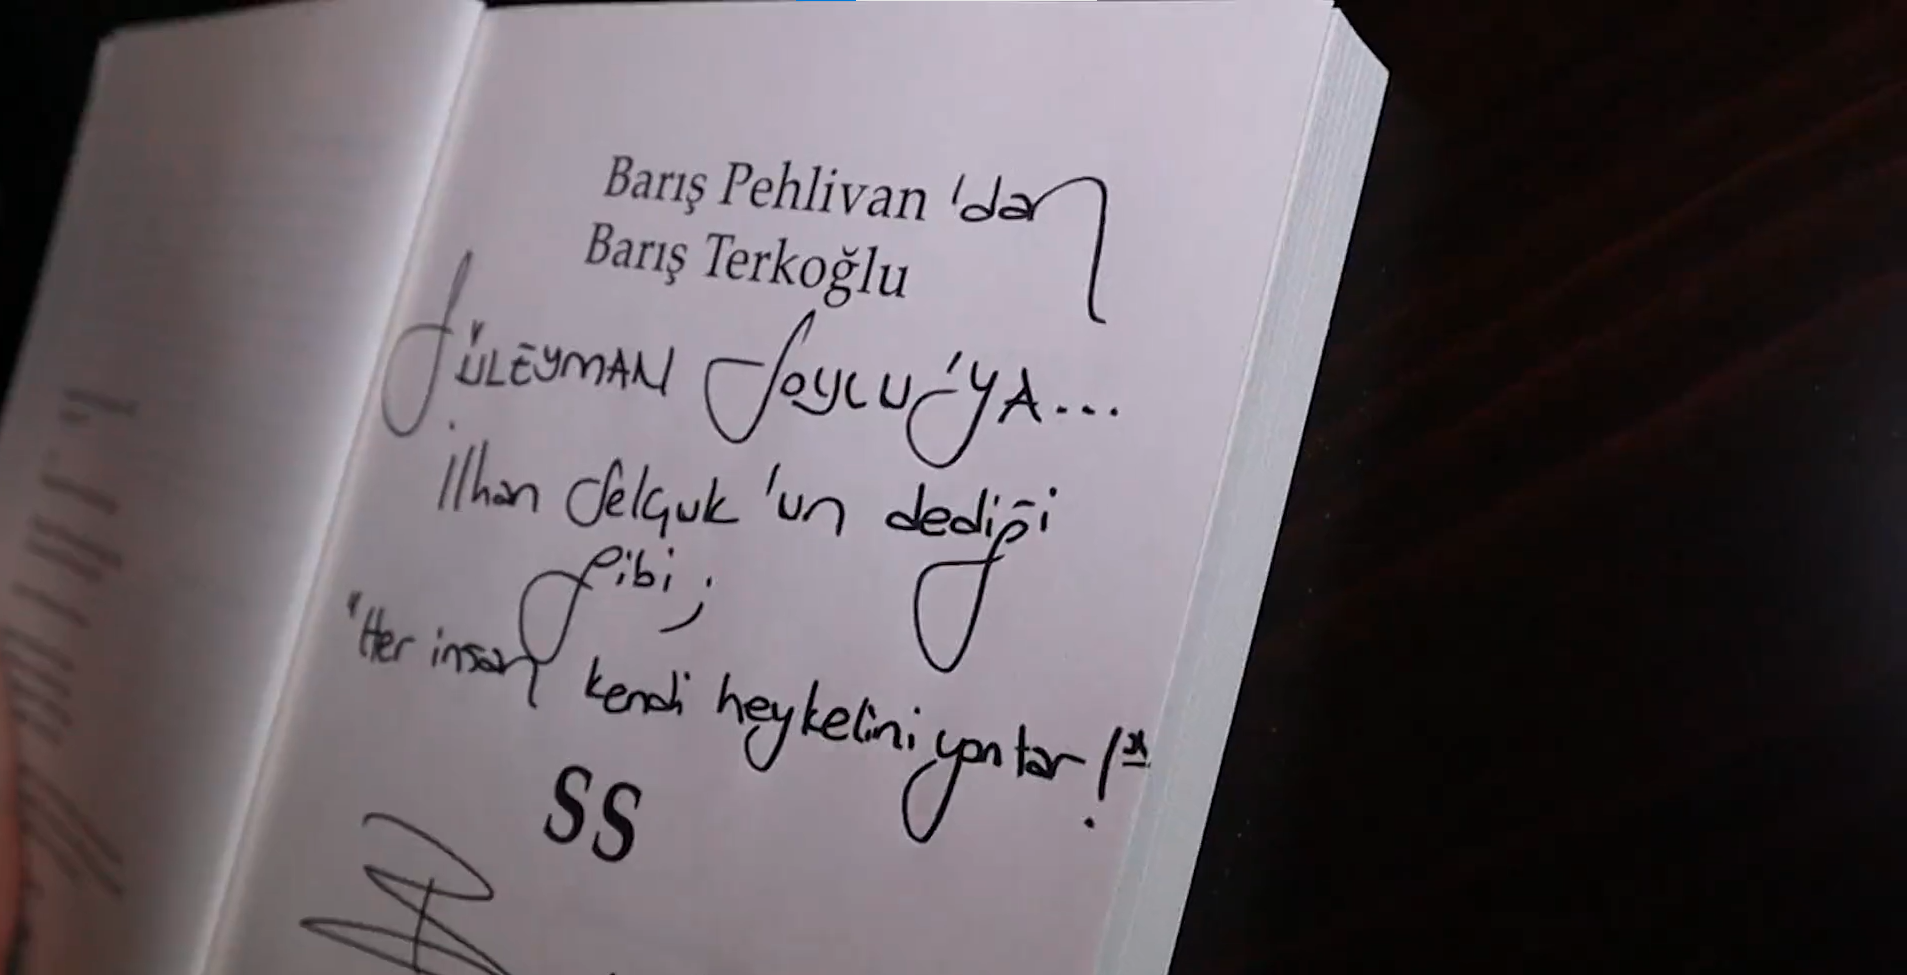 Barış Pehlivan 'dan
Barış Terkoğlu
SÜLEYMAN SOYLU'YA...
İlhan Selçuk 'un dediği
gibi;
"Her insan kendi heykelini yontar!"
SS